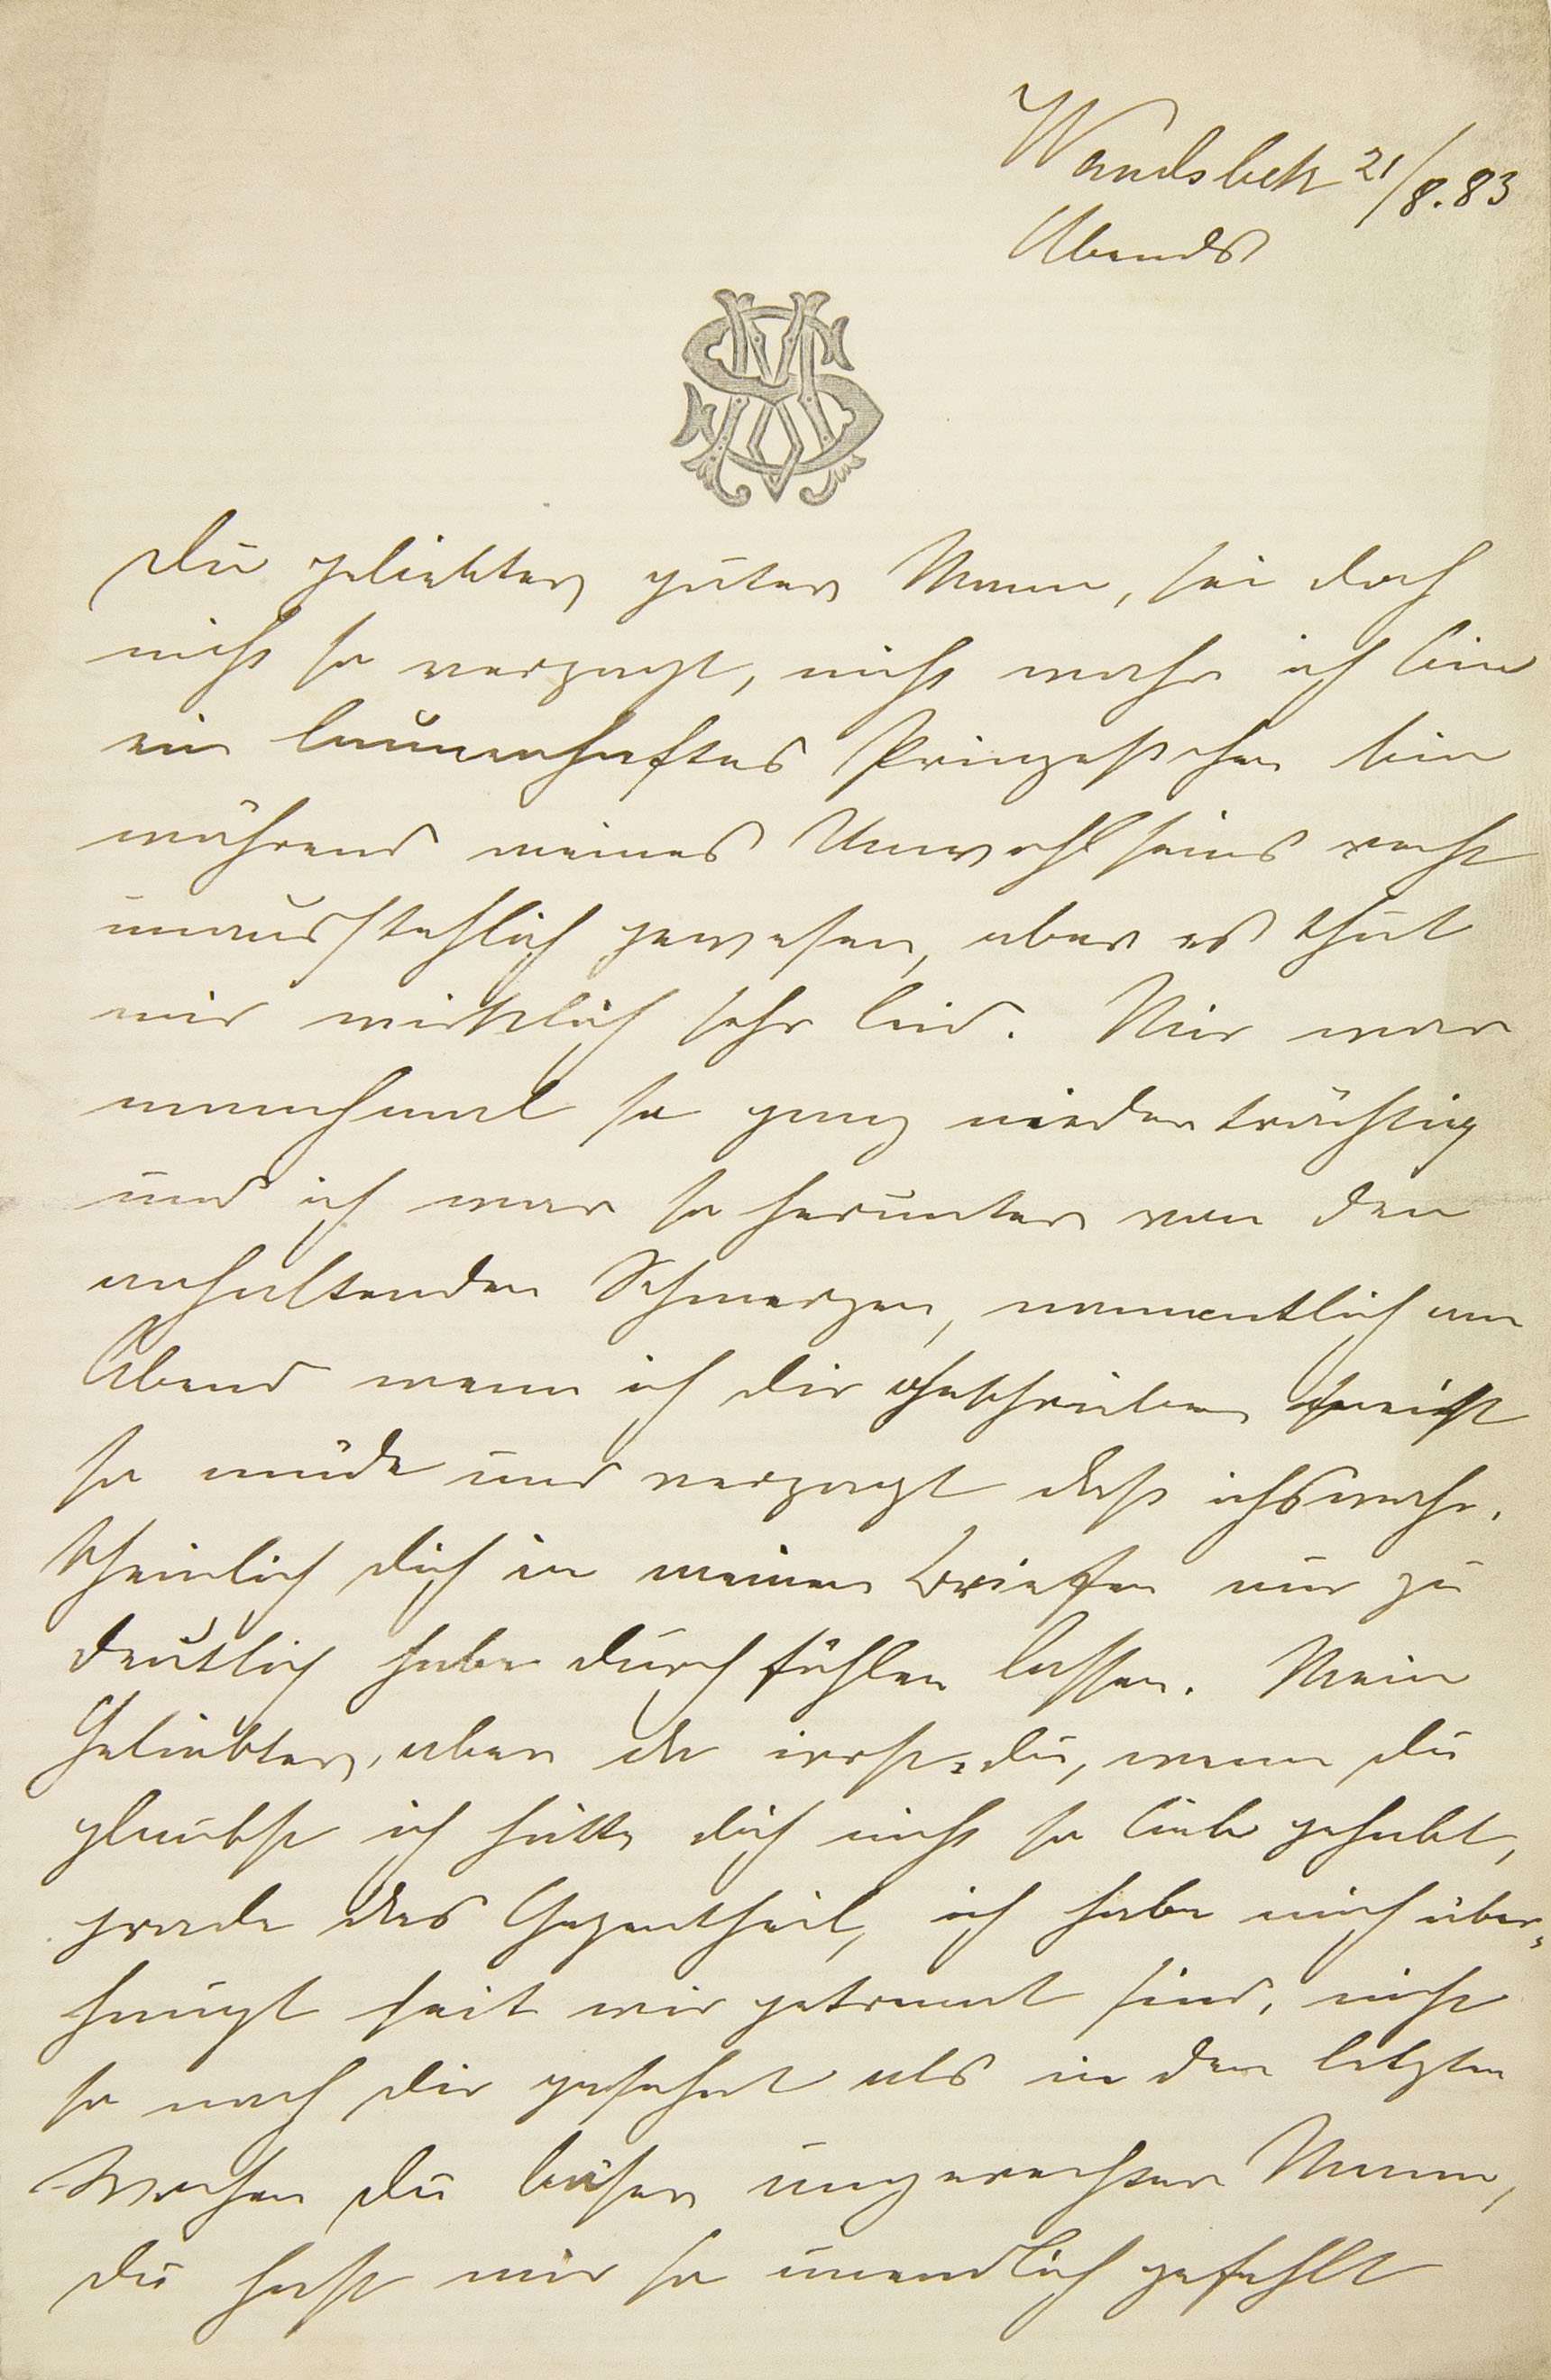 Wandsbek 21/8.83
Abends
MS
Du geliebter guter Mann, sei doch
nicht so verzagt, nicht wahr ich bin
ein launenhaftes Prinzeßchen bin
während meines Unwohlseins recht
unausstehlich gewesen, aber es thut
mir wirklich sehr leid. Mir war
manchmal so ganz niederträchtig
und ich war so herunter von den
anhaltenden Schmerzen, namentlich am
Abend wenn ich dir geschrieben
so müde und verzagt daß ichs wahr-
scheinlich dich in meinen Briefen nur zu
deutlich habe durchfühlen lassen. Mein
Geliebter, aber da irrst du, wenn du
glaubst ich hätte dich nicht so lieb gehabt,
grade das Gegentheil, ich habe mich über-
haupt seit wir getrennt sind, nicht
so nach dir gesehnt als in den letzten
Wochen du böser ungerechter Mann,
du hast mir so unendlich gefehlt